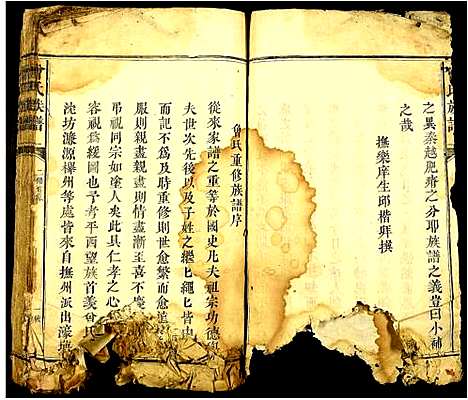 之異秦越肥瘠之分耶族譜之義豈曰小補
之哉
撫樂庠生邱楷拜撰
曾氏重修族譜序
從來家譜之重等於國史凡夫祖宗功德
夫世次先後以及子姓之繩繩皆由
而記不爲及時重修則世愈繁而愈
服則親盡親盡則情盡漸至喜不慶
弔視同宗如塗人矣此具仁孝之心
容視爲緩圖也予考平西望族首羨曾氏
坊濂源樟州等處皆來自撫州派出
氏族譜
氏族譜